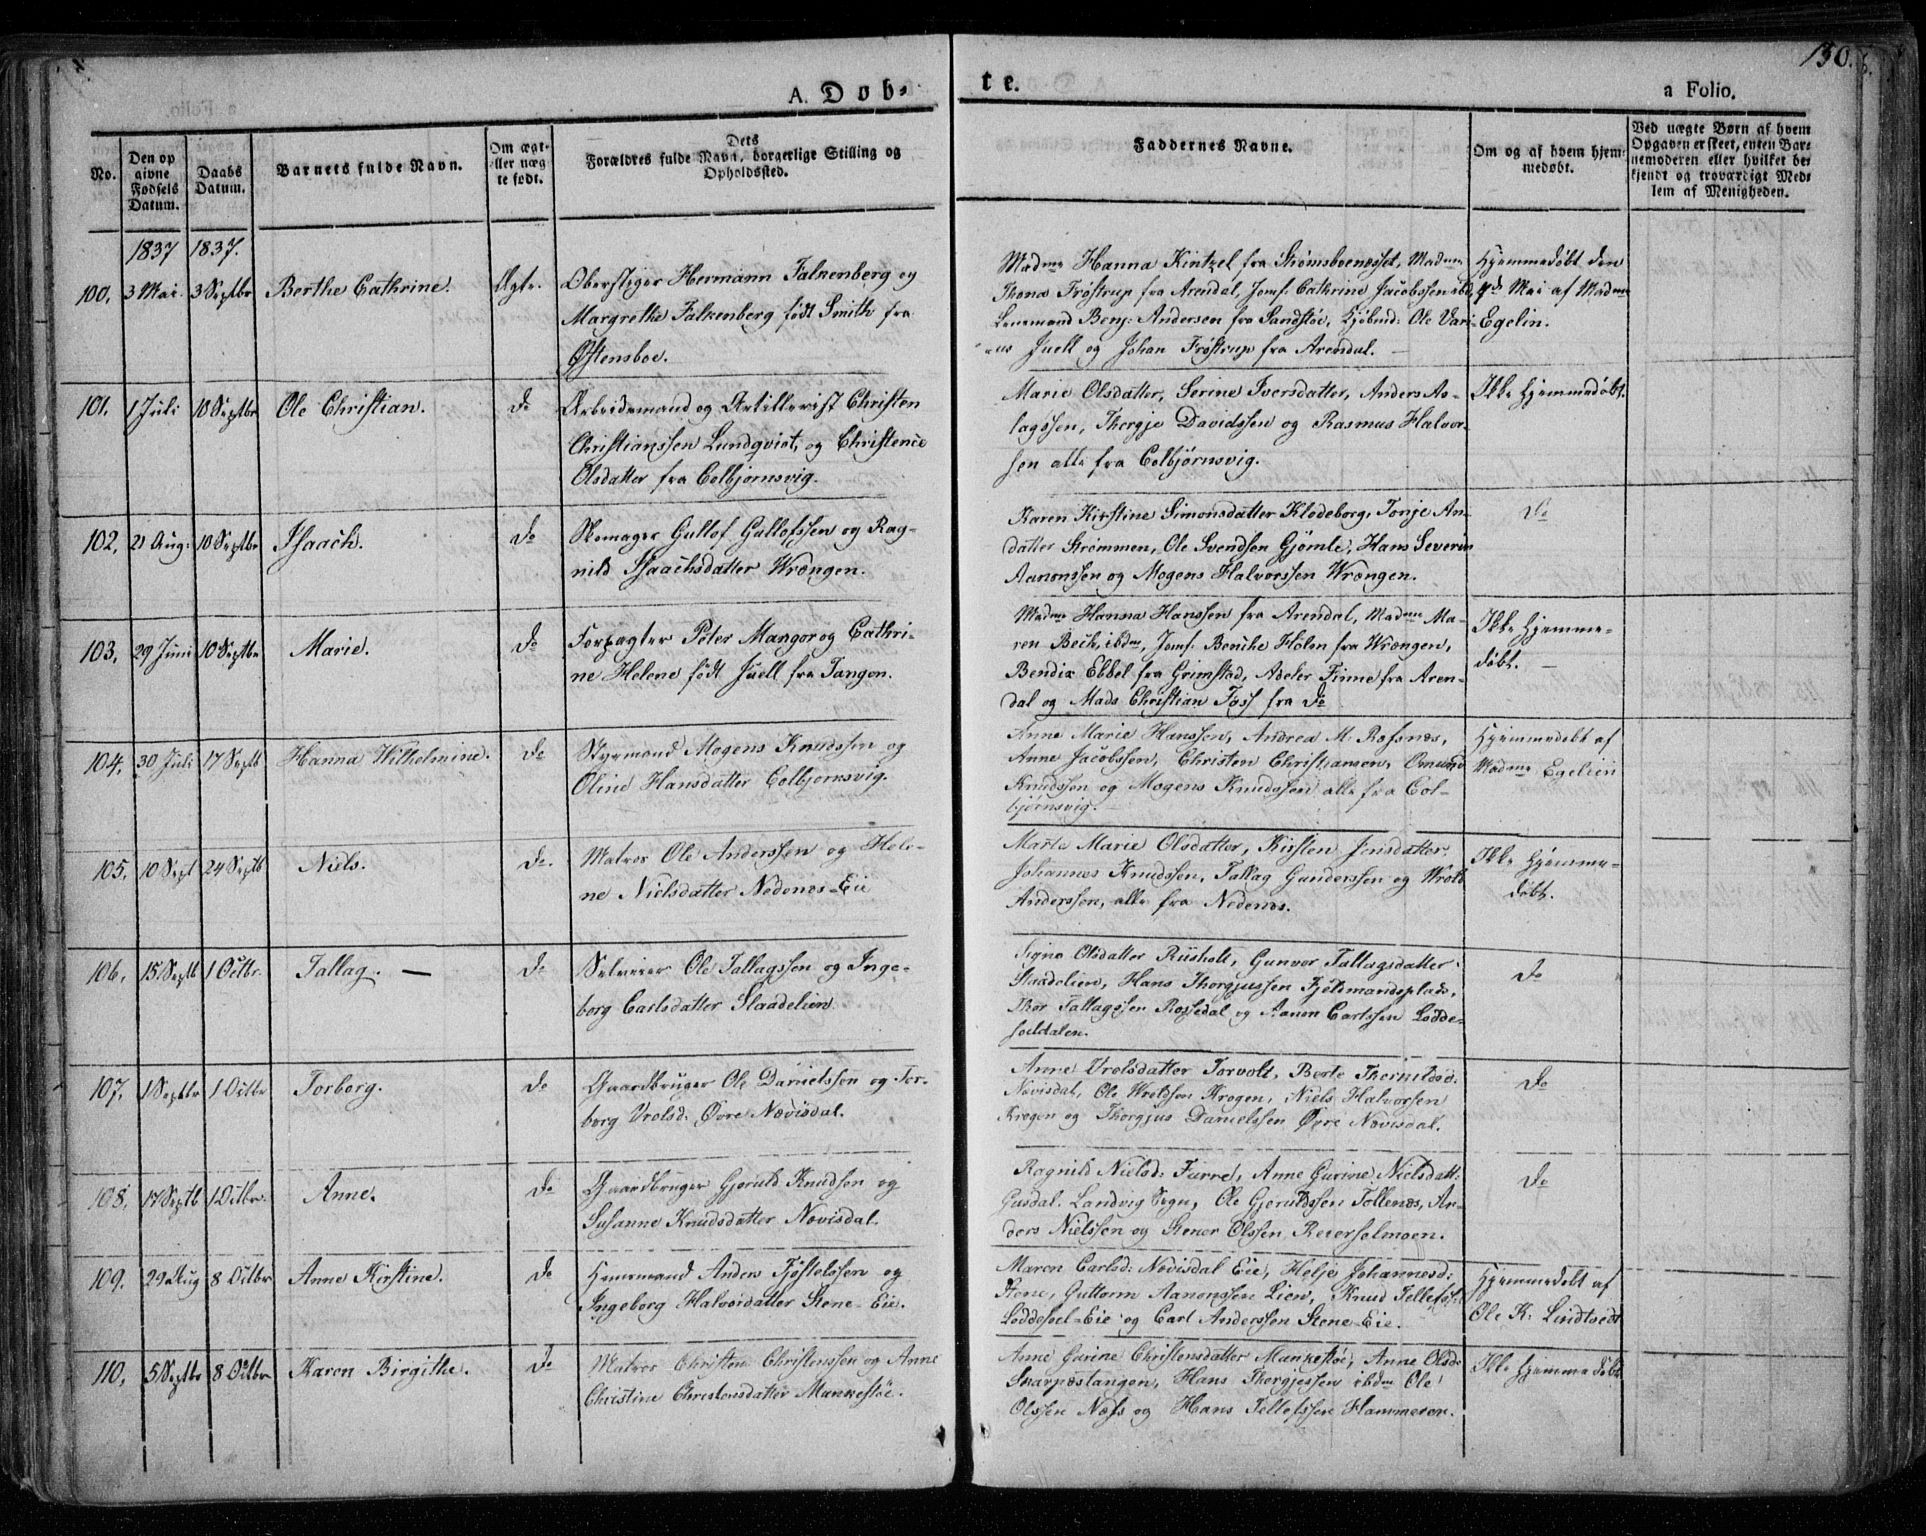 150.
A. Døb-
te.
a Folio.
No.
Den op
givne
Fødsels
Datum.
Daabs
Datum.
Barnets fulde Navn.
Om ægt-
eller uæg
te født.
Dets
Forældres fulde Navn, borgerlige Stilling og
Opholdssted.
Faddernes Navne.
Om og af hvem hjem-
medøbt.
Ved uægte Børn af hvem
Opgaven er skeet, enten Bar-
nemoderen eller hvilket be-
kjendt og troværdigt Med-
lem af Menigheden.
1837 1837.
100. 3 Mai. 3 Septbr Berthe Cathrine. Ægte. Oberstiger Hermann Falkenberg og
Margrethe Falkenberg født Smith fra
Østensboe.
Madme Hanna Kintzel fra Strømsboenesset, Madme
Thona Frøstrup fra Arendal, Jomf. Cathrine Jacobssen ibd,
Lensmand Benj: Andersen fra Sandstøe, Kjøbmd: Ole Vari-
us Juell og Johan Frøstrup fra Arendal. —
Hjemmedøbt den
4de Mai af Madme
Egelin.
101. 1 Juli 10 Septbr Ole Christian. do Arbeidsmand og Artillerist Christen
Christianssen Lundqvist, og Christence
Olsdatter fra Colbjørnsvig.
Marie Olsdatter, Serine Iversdatter, Anders As-
lagssen, Thergje Davidssen og Rasmus Halvor-
sen alle fra Colbjørnsvig.
Ikke hjemmedøbt.
102. 21 Aug: 10 Septbr Isaach. do Skomager Gullof Gullofssen og Rag-
nild Isaachsdatter Wrængen.
Karen Kirstine Simonsdatter Klodeborg, Tonje An-
datter Strømmen, Ole Svendsen Gjømle, Hans Severin
Aanonssen og Mogens Halvorssen Wrængen.
do
103. 29 Juni 10 Septbr Marie. do Forpagter Peter Mangor og Cathri-
ne Helene født Juell fra Tangen.
Madme Hanna Hanssen fra Arendal, Madme Ma-
ren Beck, ibdm, Jomf: Benthe Holen fra Wrængen,
Bendix Ebbel fra Grimstad, Adeler Finne fra Aren-
dal og Mads Christian Foss fra do
Ikke hjemme-
døbt. —
104. 30 Juli 17 Septb Hanna Wilhelmine. do Styrmand Mogens Knudssen og
Oline Hansdatter Colbjørnsvig.
Anne Marie Hanssen, Andrea M. Rafsnes,
Anne Jacobssen, Christen Christiansen, Omund
Knudssen og Mogens Knudssen alle fra Col-
bjørnsvig.
Hjemmedøbt af
Madme Egelien
105. 10 Sept 24 Septb Niels. do. Matros Ole Anderssen og Hele-
ne Nielsdatter Nedenes-Eie
Marte Marie Olsdatter, Kirsten Jensdatter,
Johannes Knudssen, Tallag Gunderssen og Wrold
Anderssen, alle fra Nedenes.
Ikke hjemme-
døbt.
106. 15 Septb 1 Octbr. Tallag. — do Selveier Ole Tallagssen og Inge-
borg Carlsdatter Slaadelien.
Signe Olsdatter Riisholt, Gunvor Tallagsdatter
Slaadelien, Hans Thorgjussen Fjeldmandsplads,
Thor Tallagssen Rossedal og Aanon Carlssen Lødde-
søeldalen.
do
107. 1 Septbr 1 Octbr Torborg. do Gaardbruger Ole Danielssen og Tor-
borg Vrolsd: Øvre Nævisdal.
Anne Vrolsdatter Torvolt, Berte Thernilsd:
Nævisdal, Ole Wroldsen Krogen, Niels Halvorssen
Krogen og Thorgjus Danielssen Øvre Nævisdal.
do
108. 17 Septb 1 Octbr. Anne. do Gaardbruger Gjeruld Knudssen og
Susanne Knudsdatter Nævisdal.
Ragnild Nielsd: Furre, Anne Gurine Nielsdatt:
Gusdal. Landvig Sogn, Ole Gjeruldssen Tollenæs, An-
ders Nielssen og Stener Olssen Reiersølmoen.
do
109. 29 Aug 8 Octbr Anne Kirstine. do Huusmand Anders Tjøstelssen og
Ingeborg Halvorsdatter Stene-Eie.
Maren Carlsd: Nævisdal Eie, Helje Johannesd:
Stene, Guttorm Aanonssen Lien, Knud Tellefss:
Løddesøel-Eie og Carl Anderssen Stene-Eie.
Hjemmedøbt af
Ole K: Lindtvedt
110. 5 Septbr 8 Octbr Karen Birgithe. do Matros Christen Christenssen og Anne
Christine Christensdatter Munkestøe.
Anne Gurine Christensdatter Munkestøe, Anne Olsd:
Skarpnæstangen, Hans Thorgjessen ibdm Ole
Olssen Næss og Hans Tellefssen Hammeren.
Ikke hjemmedøbt